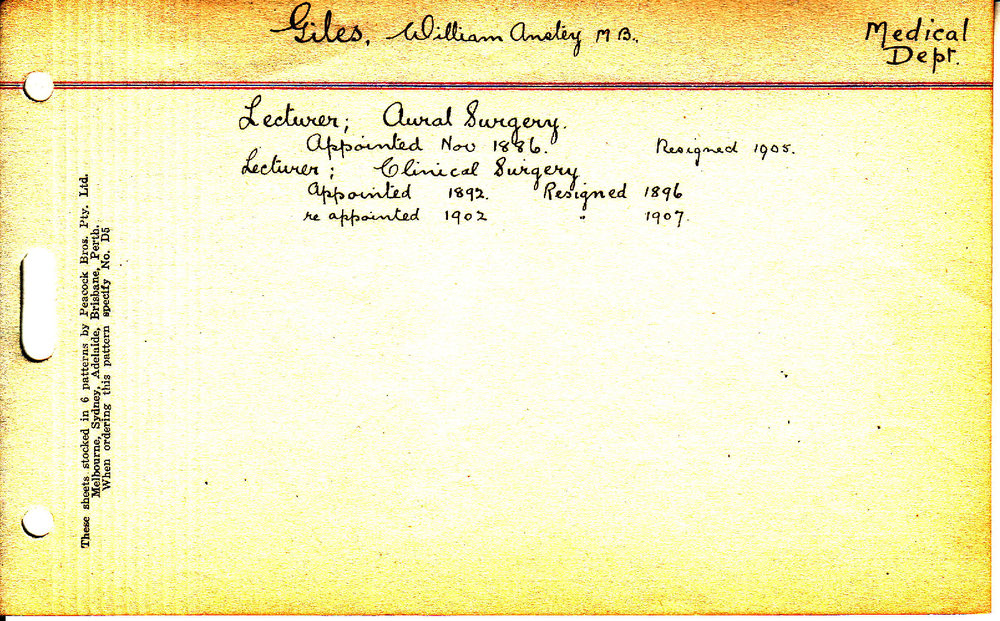 Giles, William Anstey M B.
Medical
Dept.
Lecturer; Aural Surgery.
Appointed Nov 1886. Resigned 1905.
Lecturer; Clinical Surgery
Appointed 1892. Resigned 1896
re appointed 1902 " 1907.
These sheets stocked in 6 patterns by Peacock Bros. Pty. Ltd.
Melbourne, Sydney, Adelaide, Brisbane, Perth.
When ordering this pattern specify No. D5